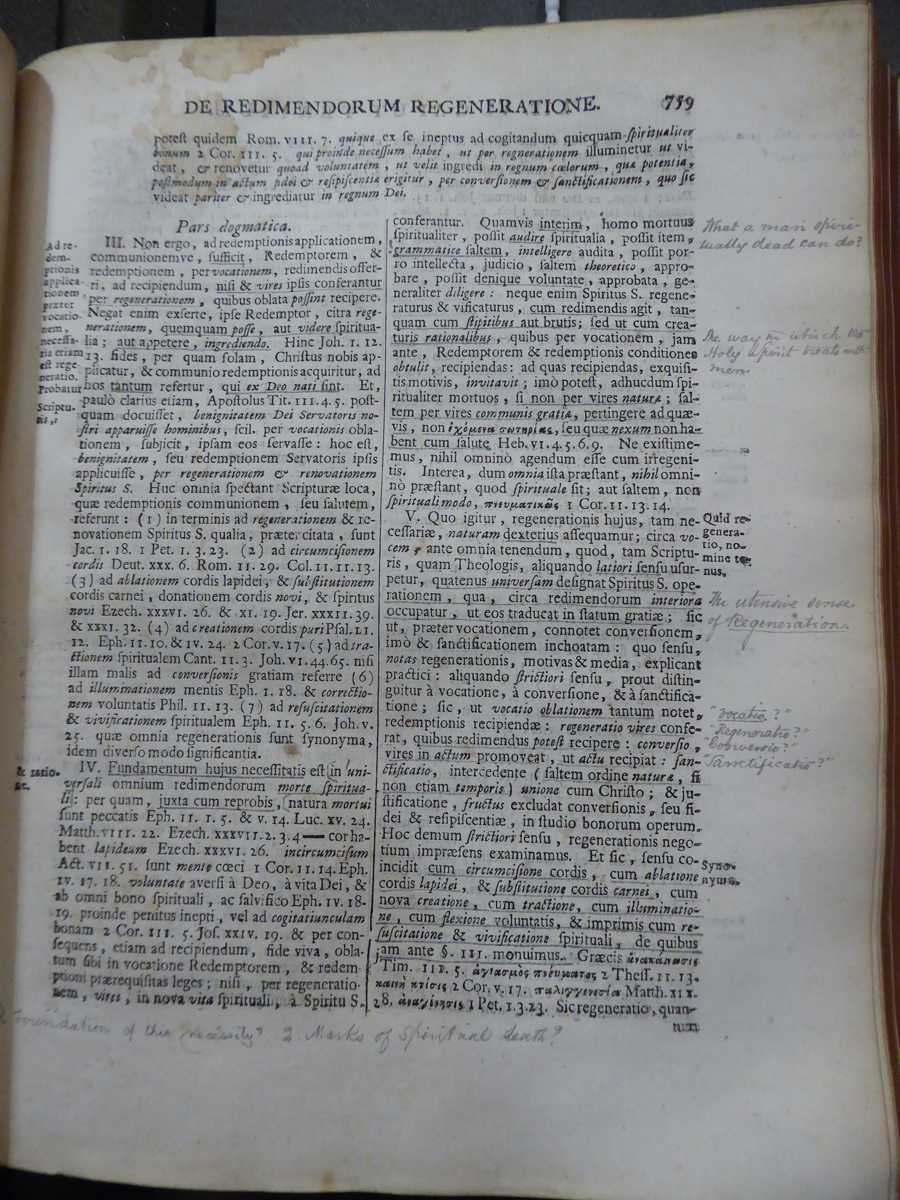 DE REDIMENDORUM REGENERATIONE. 759
poteſt quidem Rom. VIII. 7. quique ex ſe ineptus ad cogitandum quicquam ſpiritualiter
bonum 2 Cor. III. 5. qui proinde neceſſum habet, ut per regenerationem illuminetur ut vi-
deat, & renovetur quoad voluntatem, ut velit ingredi in regnum cœlorum, quæ potentia,
poſtmodum in actum fidei & reſipiſcentiæ erigitur, per converſionem & ſanctificationem, quo ſic
videat pariter & ingrediatur in regnum Dei.
Pars dogmatica.
Ad re-
dem-
ptionis
applica-
tionem
præter
vocatio-
nem,
neceſſa-
ria etiam
eſt rege-
neratio.
Probatur
Scriptu-
ris,
III. Non ergo, ad redemptionis applicationem,
communionemve, ſufficit, Redemptorem, &
redemptionem, per vocationem, redimendis offer-
ri, ad recipiendum, niſi & vires ipſis conferantur
per regenerationem, quibus oblata poſſint recipere.
Negat enim exſerte, ipſe Redemptor, citra rege-
nerationem, quemquam poſſe, aut videre ſpiritua-
lia; aut appetere, ingrediendo. Hinc Joh. I. 12.
13. fides, per quam ſolam, Chriſtus nobis ap-
plicatur, & communio redemptionis acquiritur, ad
hos tantum refertur, qui ex Deo nati ſint. Et,
paulò clarius etiam, Apoſtolus Tit. III. 4. 5. poſt-
quam docuiſſet, benignitatem Dei Servatoris no-
ſtri apparuiſſe hominibus, ſcil. per vocationis obla-
tionem, ſubjicit, ipſam eos ſervaſſe: hoc eſt,
benignitatem, ſeu redemptionem Servatoris ipſis
applicuiſſe, per regenerationem & renovationem
Spiritus S. Huc omnia ſpectant Scripturæ loca,
quæ redemptionis communionem, ſeu ſalutem,
referunt: (1) in terminis ad regenerationem & re-
novationem Spiritus S. qualia, præter citata, ſunt
Jac. I. 18. 1 Pet. I. 3. 23. (2) ad circumciſionem
cordis Deut. XXX. 6. Rom. II. 29. Col. II. 11. 13.
(3) ad ablationem cordis lapidei, & ſubſtitutionem
cordis carnei, donationem cordis novi, & ſpiritus
novi Ezech. XXXVI. 26. & XI. 19. Jer. XXXII. 39.
& XXXI. 32. (4) ad creationem cordis puri Pſal. LI.
12. Eph. II. 10. & IV. 24. 2 Cor. V. 17. (5) ad tra-
ctionem ſpiritualem Cant. II. 3. Joh. VI. 44. 65. niſi
illam malis ad converſionis gratiam referre (6)
ad illuminationem mentis Eph. I. 18. & correctio-
nem voluntatis Phil. II. 13. (7) ad reſuſcitationem
& vivificationem ſpiritualem Eph. II. 5. 6. Joh. V.
25. quæ omnia regenerationis ſunt ſynonyma,
idem diverſo modo ſignificantia.
& ratio-
IV. Fundamentum hujus neceſſitatis eſt in uni-
verſali omnium redimendorum morte ſpiritua-
li: per quam, juxta cum reprobis, natura mortui
ſunt peccatis Eph. II. 1. 5. & V. 14. Luc. XV. 24.
Matth. VIII. 22. Ezech. XXXVII. 2. 3. 4 — cor ha-
bent lapideum Ezech. XXXVI. 26. incircumciſum
Act. VII. 51. ſunt mente cœci 1 Cor. II. 14. Eph.
IV. 17. 18. voluntate averſi à Deo, à vita Dei, &
ab omni bono ſpirituali, ac ſalvifico Eph. IV. 18-
19. proinde penitus inepti, vel ad cogitatiunculam
bonam 2 Cor. III. 5. Joſ. XXIV. 19. & per con-
ſequens, etiam ad recipiendum, fide viva, obla-
tum ſibi in vocatione Redemptorem, & redem-
ptioni prærequiſitas leges; niſi, per regeneratio-
nem, vires, in nova vita ſpirituali, à Spiritu S.
conferantur. Quamvis interim, homo mortuus
ſpiritualiter, poſſit audire ſpiritualia, poſſit item,
grammatice ſaltem, intelligere audita, poſſit por-
ro intellecta, judicio, ſaltem theoretico, appro-
bare, poſſit denique voluntate, approbata, ge-
neraliter diligere: neque enim Spiritus S. regene-
raturus & vificaturus, cum redimendis agit, tan-
quam cum ſtipitibus aut brutis; ſed ut cum crea-
turis rationalibus, quibus per vocationem, jam
ante, Redemptorem & redemptionis conditiones
obtulit, recipiendas: ad quas recipiendas, exquiſi-
tis motivis, invitavit; imò poteſt, adhucdum ſpi-
ritualiter mortuus, ſi non per vires naturæ; ſal-
tem per vires communis gratiæ, pertingere ad quæ-
vis, non ἐχόμενα σωτηρίας, ſeu quæ nexum non ha-
bent cum ſalute Heb. VI. 4. 5. 6. 9. Ne exiſtime-
mus, nihil omninò agendum eſſe cum irregeni-
tis. Interea, dum omnia iſta præſtant, nihil omni-
nò præſtant, quod ſpirituale ſit; aut ſaltem, non
ſpirituali modo, πνευματικῶς 1 Cor. II. 13. 14.
V. Quo igitur, regenerationis hujus, tam ne-
ceſſariæ, naturam dexterius aſſequamur; circa vo-
cem, ante omnia tenendum, quod, tam Scriptu-
ris, quam Theologis, aliquando latiori ſenſu uſur-
petur, quatenus univerſam deſignat Spiritus S. ope-
rationem, qua, circa redimendorum interiora
occupatur, ut eos traducat in ſtatum gratiæ; ſic
ut, præter vocationem, connotet converſionem,
imò & ſanctificationem inchoatam: quo ſenſu,
notas regenerationis, motivas & media, explicant
practici: aliquando ſtrictiori ſenſu, prout diſtin-
guitur à vocatione, à converſione, & à ſanctifica-
tione; ſic, ut vocatio oblationem tantum notet,
redemptionis recipiendæ: regeneratio vires confe-
rat, quibus redimendus poteſt recipere: converſio,
vires in actum promoveat, ut actu recipiat: ſan-
ctificatio, intercedente (ſaltem ordine naturæ, ſi
non etiam temporis) unione cum Chriſto; & ju-
ſtificatione, fructus excludat converſionis, ſeu fi-
dei & reſipiſcentiæ, in ſtudio bonorum operum.
Hoc demum ſtrictiori ſenſu, regenerationis nego-
tium impræſens examinamus. Et ſic, ſenſu co-
incidit cum circumciſione cordis, cum ablatione
cordis lapidei, & ſubſtitutione cordis carnei, cum
nova creatione, cum tractione, cum illuminatio-
ne, cum flexione voluntatis, & imprimis cum re-
ſuſcitatione & vivificatione ſpirituali, de quibus
jam ante §. III. monuimus. Græcis ἀνακαίνωσις
Tim. III. 5. ἁγιασμὸς πνεύματος 2 Theſſ. II. 13.
καινὴ κτίσις 2 Cor. V. 17. παλιγγενεσία Matth. XIX.
28. ἀναγέννησις 1 Pet. I. 3. 23. Sic regeneratio, quan-
tum
Quid re-
genera-
tio, no-
mine te-
nus.
Syno-
nyma.
What a man spiri-
tually dead can do?
The way in which the
Holy Spirit deals with
men.
The extensive sense
of Regeneration.
"Vocatio?"
"Regeneratio?"
"Conversio?"
"Sanctificatio?"
Foundation of this necessity? 2. Marks of Spiritual death?